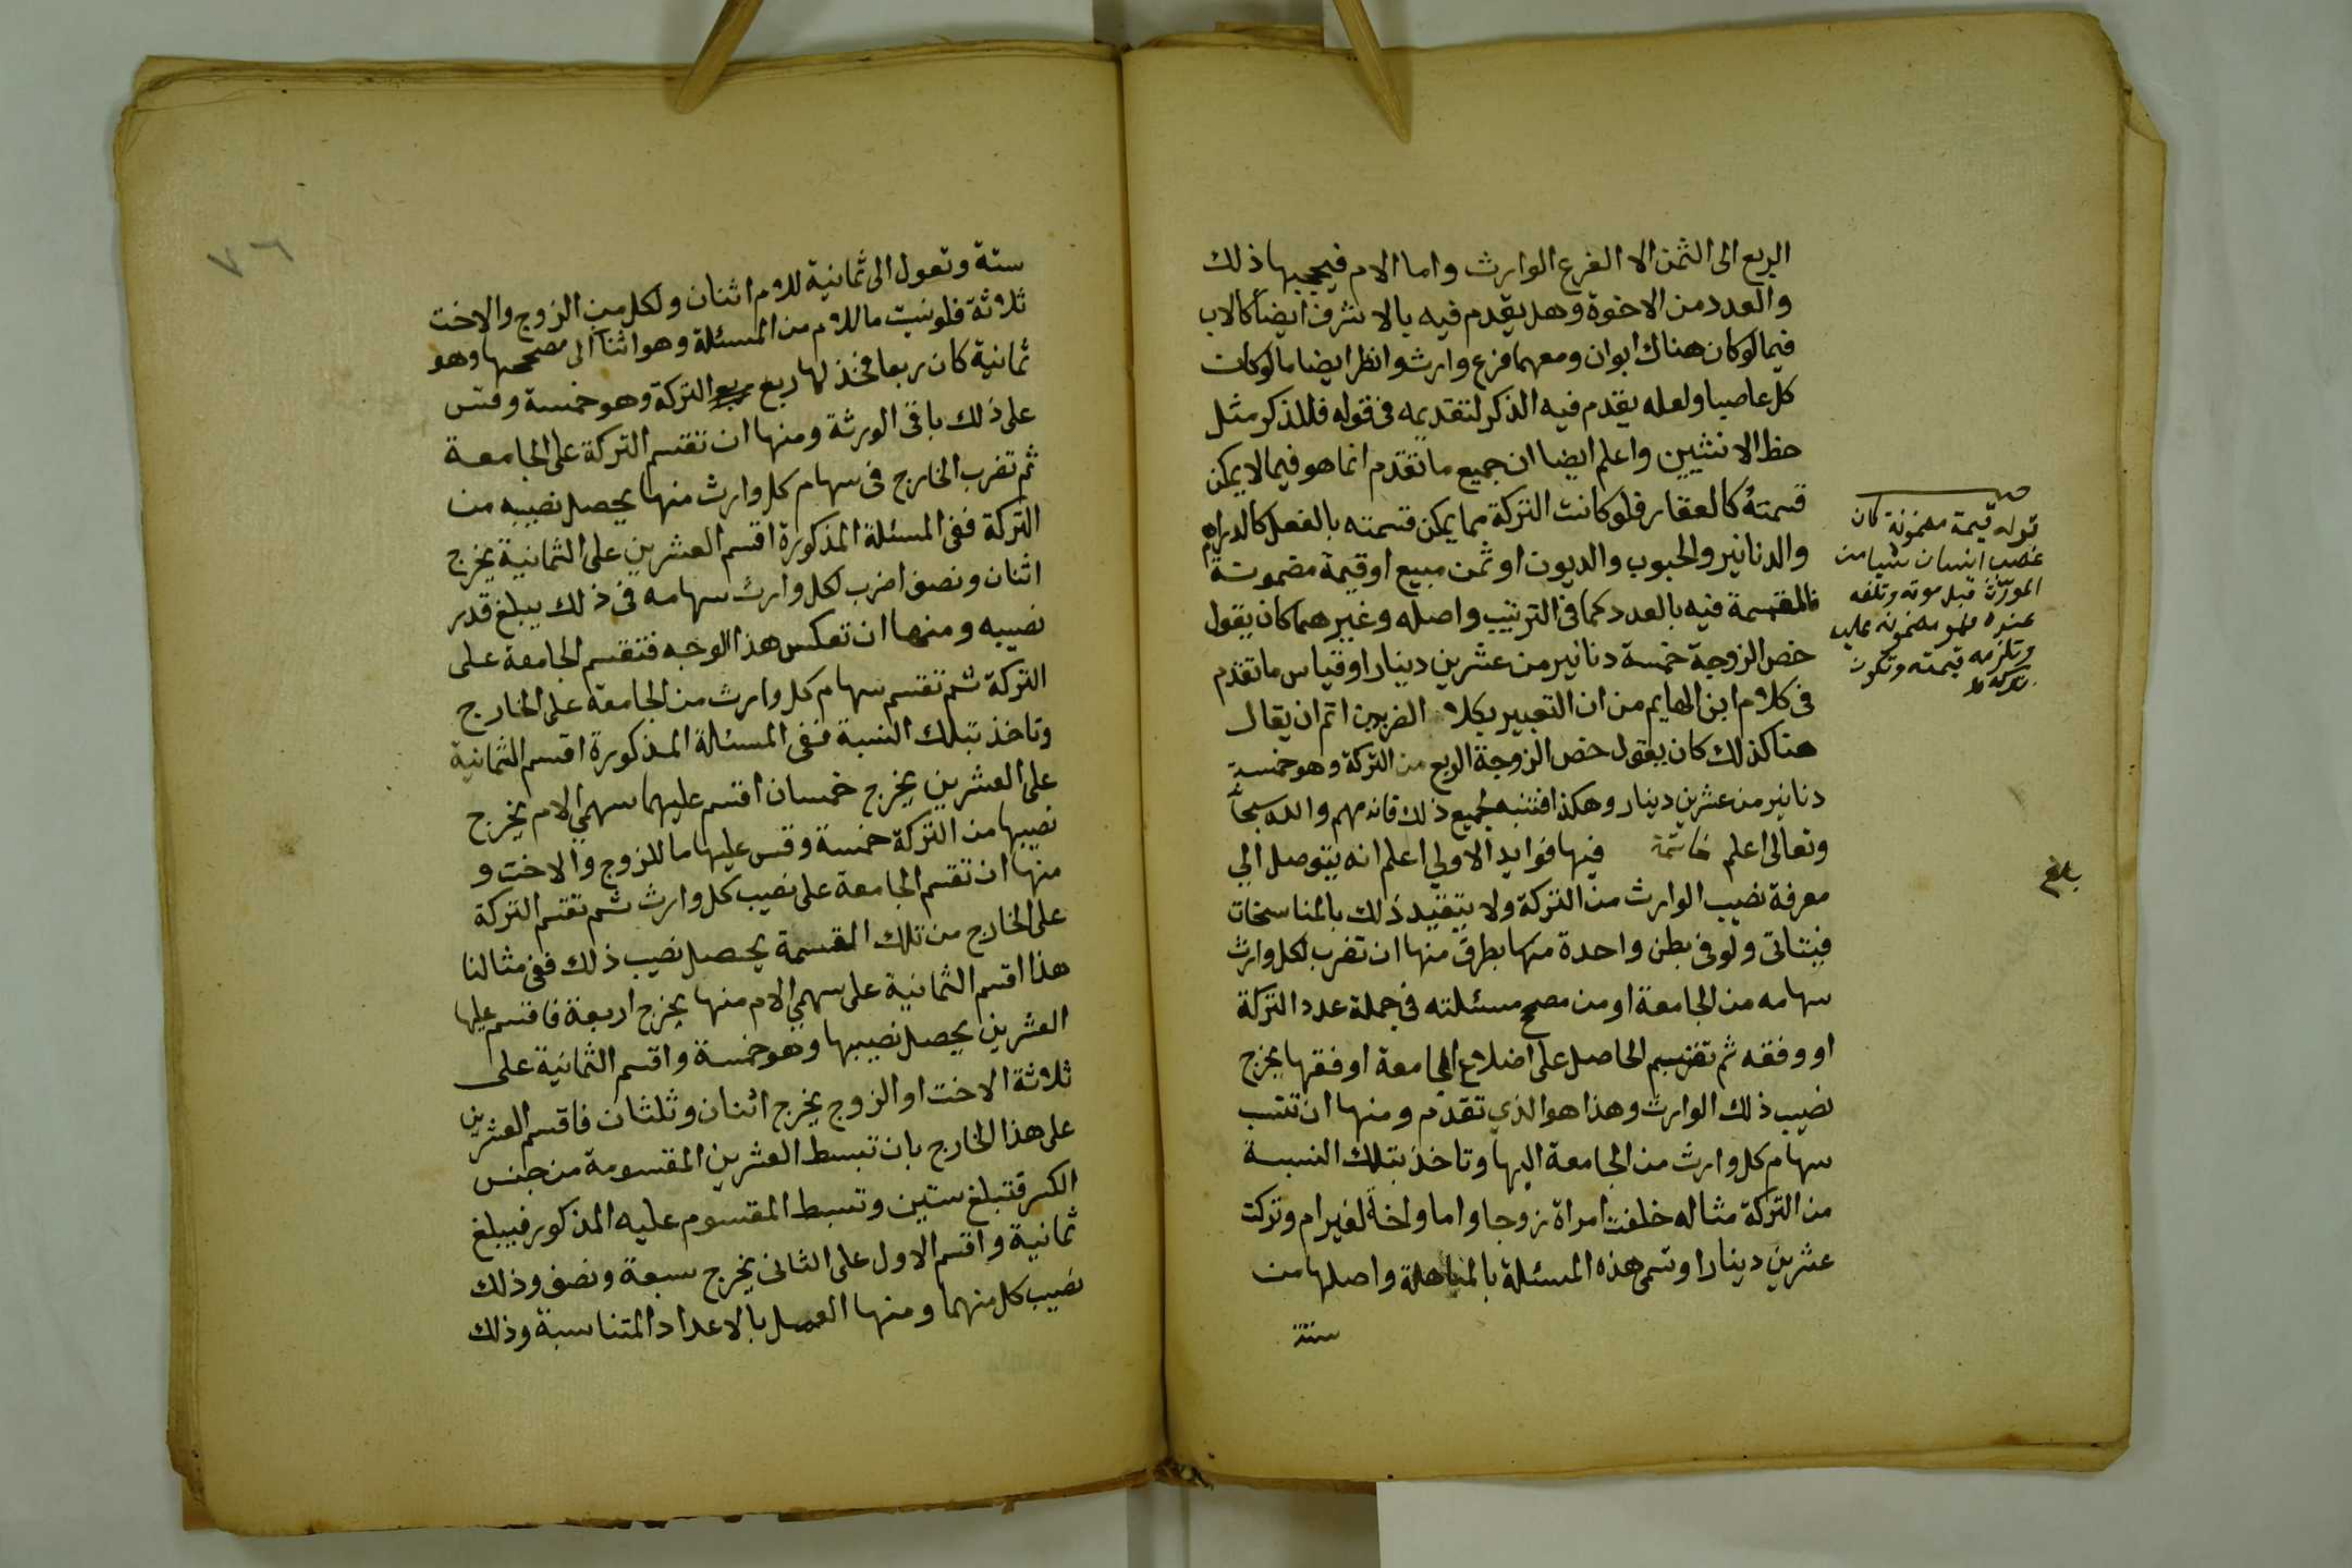 الربع الى الثمن الا الفرع الوارث واما الام فيحجبها ذلك
والعدد من الاخوة وهل يقدم فيه بالاشرف ايضا كالاب
فيما لو كان هناك ابوان ومعهما فرع وارث وانظر ايضا ما لو كان
كل عاصبا ولعله يقدم فيه الذكر لتقديمه فى قوله فللذكر مثل
حظ الانثيين واعلم ايضا ان جميع ما تقدم انما هو فيما لا يمكن
قسمته كالعقار فلو كانت التركة مما يمكن قسمته بالفعل كالدراهم
والدنانير والحبوب والديون او ثمن مبيع او قيمة مضمونة
فالقسمة فيه بالعدد كما فى الترتيب واصله وغيرهما كان يقول
خص الزوجة خمسة دنانير من عشرين دينارا وقياس ما تقدم
فى كلام ابن الهايم من ان التعبير بكلا الضربين اتم ان يقال
هنا كذلك كان يقول خص الزوجة الربع من التركة وهو خمسة
دنانير من عشرين دينار وهكذا فتنبه لجميع ذلك فانه مهم والله سبحا
وتعالى اعلم خاتمة فيها فوايد الاولي اعلم انه يتوصل الي
معرفة نصيب الوارث من التركة ولا يتقيد ذلك بالمناسخات
فيتاتى ولو فى بطن واحدة منها بطرق منها ان تضرب لكل وارث
سهامه من الجامعة او من مصح مسئلته فى جملة عدد التركة
او وفقه ثم تقسم الحاصل على اضلاع الجامعة او فقها يخرج
نصيب ذلك الوارث وهذا هو الذي تقدم ومنها ان تنسب
سهام كل وارث من الجامعة اليها وتاخذ بتلك النسبة
من التركة مثاله خلفت امراة زوجا واما واختا لغير ام وتركت
عشرين دينارا وتسمى هذه المسئلة بالمباهلة واصلها من
ستة
قوله قيمة مضمونة كان
غصب انسان شيا من
المورث قبل موته وتلفه
عنده فهو مضمونه عليه
وتلزمه قيمته وتكون
تركة
بلغ
٧٦
ستة وتعول الى ثمانية للام اثنان ولكل من الزوج والاخت
ثلاثة فلو نسبت ما للام من المسئلة وهو اثنا الى مصححها وهو
ثمانية كان ربعا فخذ لها ربع التركة وهو خمسة وقس
على ذلك باقى الورثة ومنها ان تقسم التركة على الجامعة
ثم تضرب الخارج فى سهام كل وارث منها يحصل نصيبه من
التركة ففى المسئلة المذكورة اقسم العشرين على الثمانية يخرج
اثنان ونصف اضرب لكل وارث سهامه فى ذلك يبلغ قدر
نصيبه ومنها ان تعكس هذا الوجه فتقسم الجامعة على
التركة ثم تقسم سهام كل وارث من الجامعة على الخارج
وتاخذ بتلك النسبة ففى المسئلة المذكورة اقسم الثمانية
على العشرين يخرج خمسان اقسم عليهما سهمي الام يخرج
نصيبها من التركة خمسة وقس عليها ما للزوج والاخت و
منها ان تقسم الجامعة على نصيب كل وارث ثم تقسم التركة
على الخارج من تلك القسمة يحصل نصيب ذلك ففى مثالنا
هذا اقسم الثمانية على سهمي الام منها يخرج اربعة فاقسم عليها
العشرين يحصل نصيبها وهو خمسة واقسم الثمانية على
ثلاثة الاخت او الزوج يخرج اثنان وثلثان فاقسم العشرين
على هذا الخارج بان تبسط العشرين المقسومة من جنس
الكسر فتبلغ ستين وتبسط المقسوم عليه المذكور فيبلغ
ثمانية واقسم الاول على الثانى يخرج سبعة ونصف وذلك
نصيب كل منهما ومنها العمل بالاعداد المتناسبة وذلك